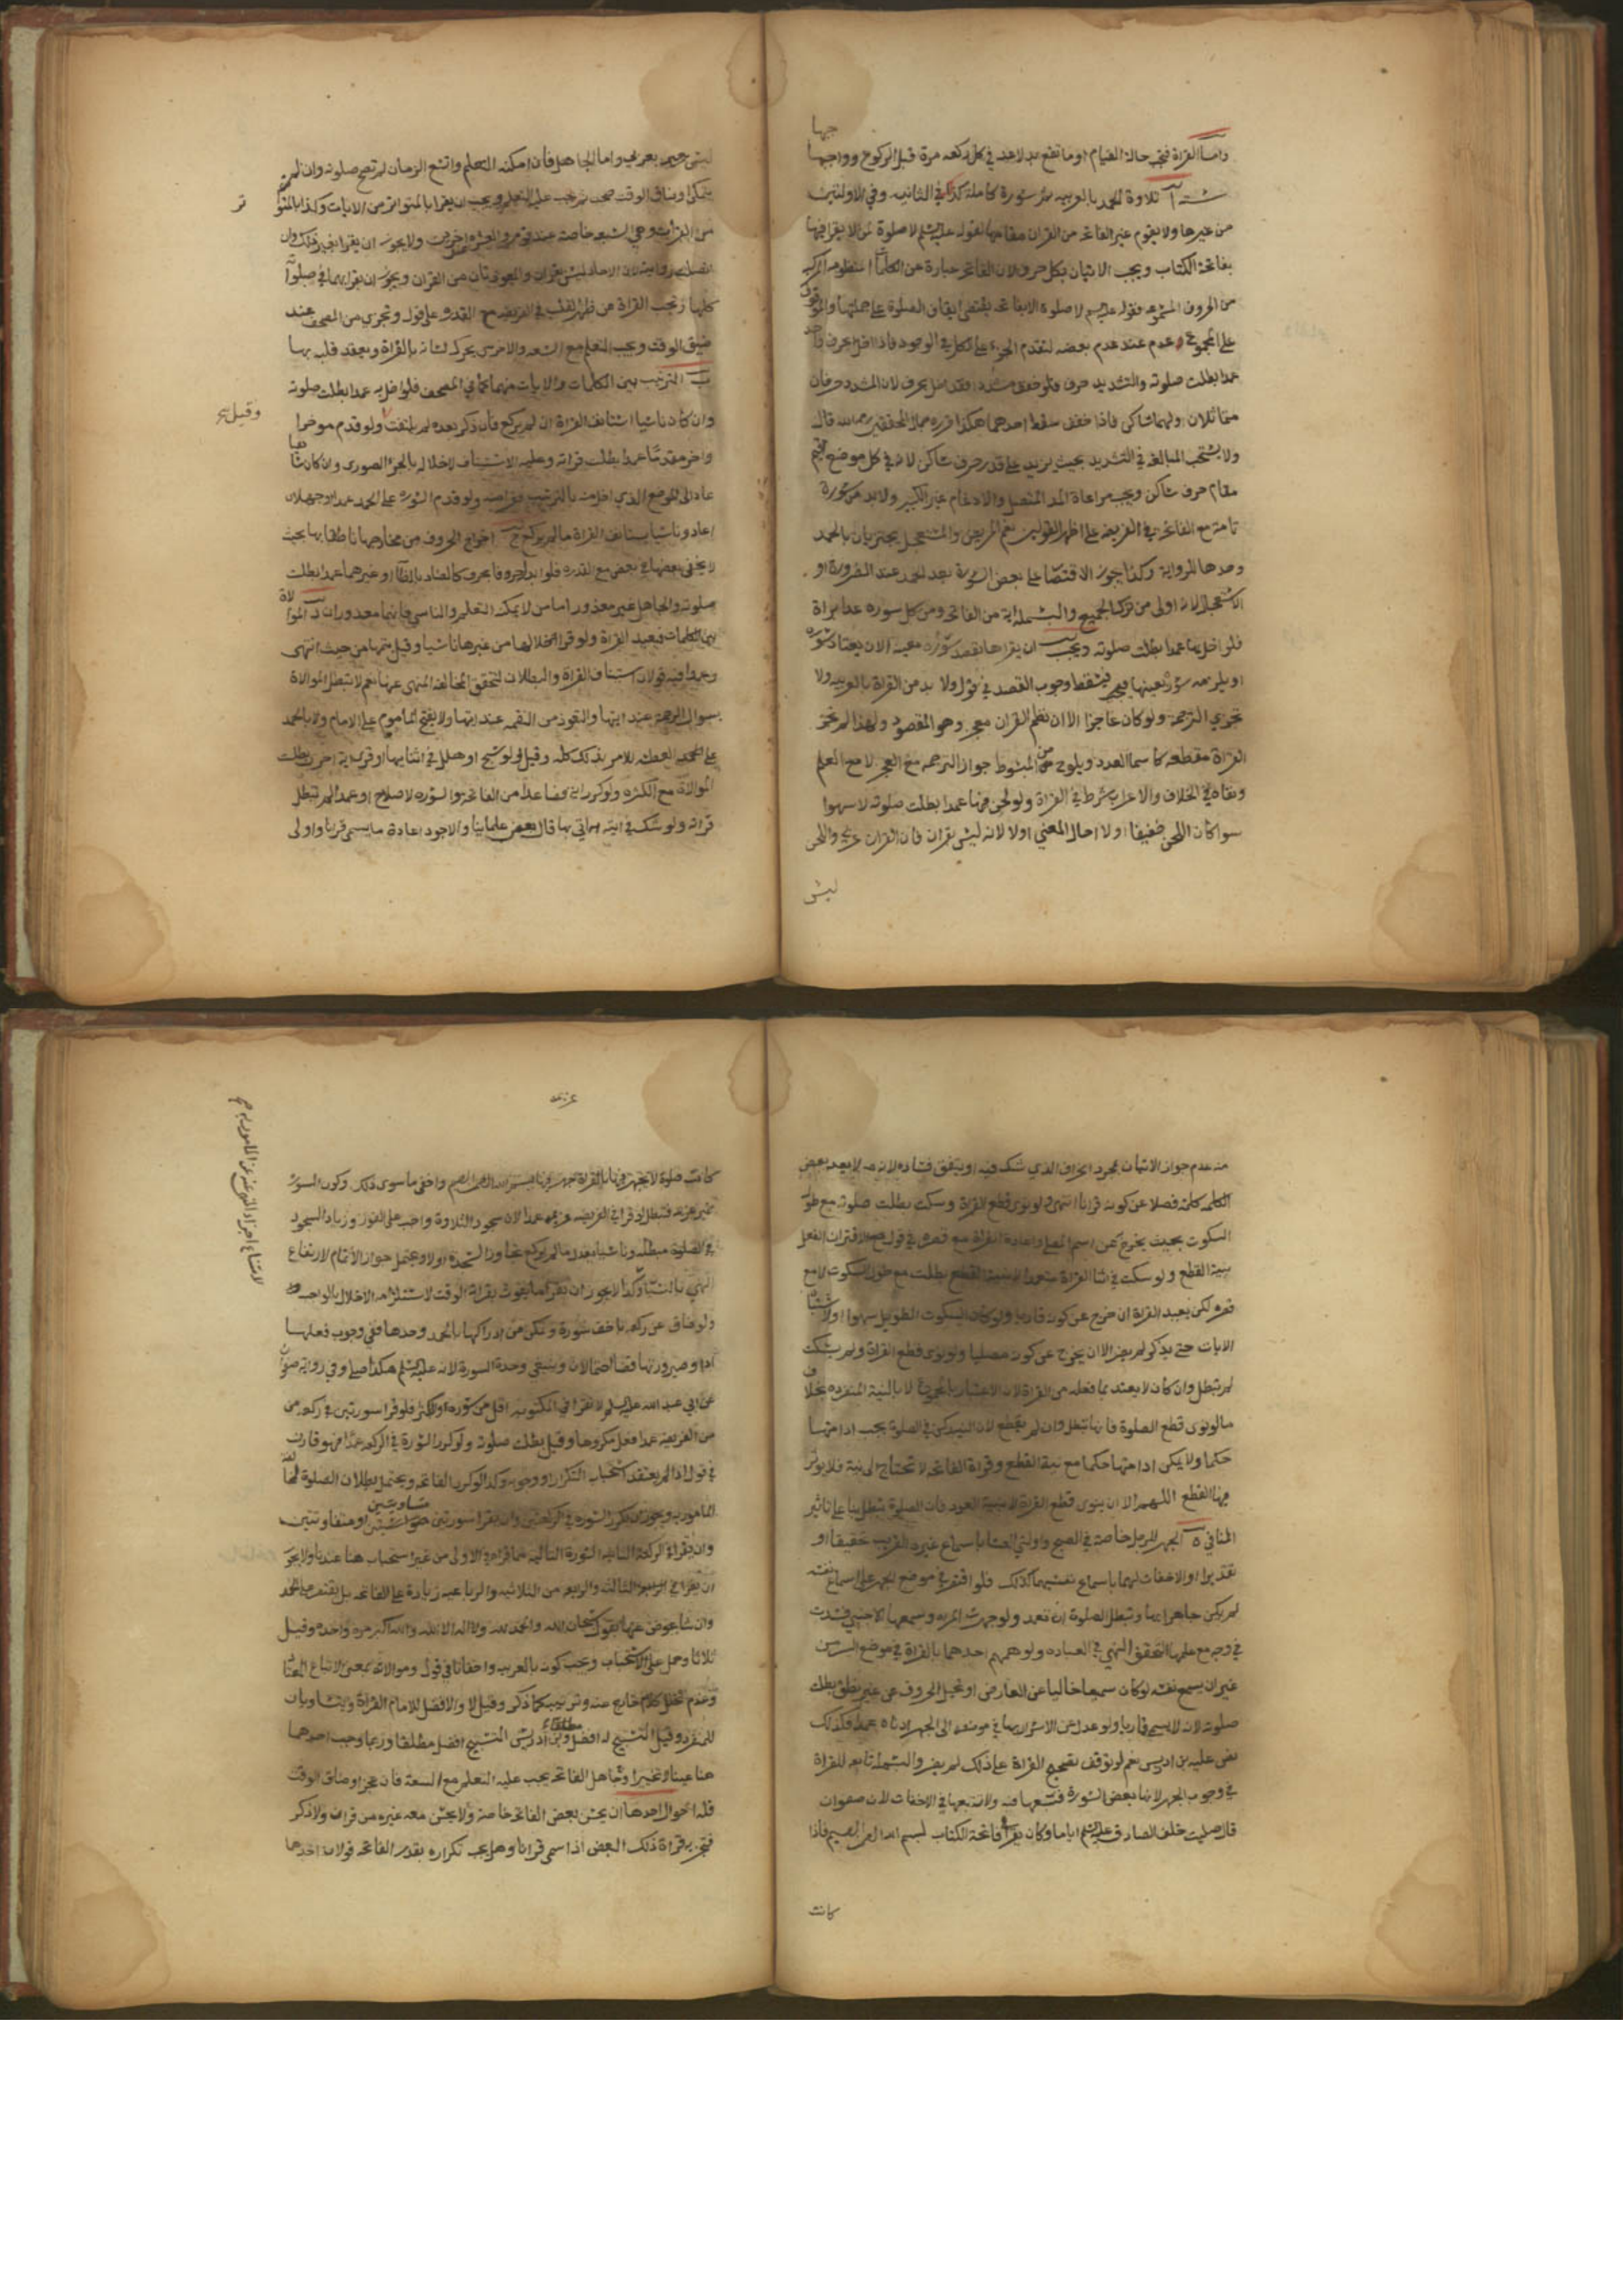 واما القراة فتجب حالة القيام او ما تقع بدلا عنه في كل ركعه مرة قبل الركوع وواجبها
ستة آ تلاوة الحمد بالعربيه ثم سورة كاملة كذا في الثانيه وفي الاولتين
من غيرها ولا يقوم غير الفاتحه من القران مقامها لقوله عليه السلم لا صلوة لمن لا يقرا فيها
بفاتحة الكتاب ويجب الاتيان بكل حرف لان الفاتحه عبارة عن الكلمات المنظومه المركبه
من الحروف المسموعه فقوله عليه السلم لا صلوة الا بفاتحه يقتضي ايقاف الصلوة على جملتها والموقوف
على المجموع عدم عند عدم بعضه لتقدم الجزء على الكل في الوجود فاذا اخل بحرف واحد
عمدا بطلت صلوته والتشديد حرف فلو خفف مشددا فقد اخل بحرف لان المشدد حرفان
متماثلان اولهما ساكن فاذا خفف سقط احدهما هكذا قرره جمال المحققين رحمه الله قال
ولا يستحب المبالغه في التشديد بحيث يزيد على قدر حرف ساكن لانه في كل موضع يقيم
مقام حرف ساكن ويجب مراعاة المد المتصل والادغام غير الكبير ولا بد من سورة
تامة مع الفاتحه في الفريضه على اظهر القولين نعم المريض والمستعجل يجتزيان بالحمد
وحدها للرواية وكذا جوز الاقتصار على بعض السورة بعد الحمد عند الضرورة او
الاستعجال لانه اولى من ترك الجميع والبسملة اية من الفاتحه ومن كل سوره عدا براة
فلو اخل بها عمدا بطلت صلوته ويجب ان يقراها بقصد سورة معينه الا ان يعتاد سورة
او يلزمه سورة بعينها فيسقط وجوب القصد في قول ولا بد من القراة بالعربيه ولا
تجزي الترجمة ولو كان عاجزا لان نظم القران معجز وهو المقصود ولهذا لم تجز
القراة مقطعه كاسما العدد ويلوح من المبسوط جواز الترجمه مع العجز لا مع العلم
ونفاه في الخلاف والاعراب شرط في القراة ولو لحن فيها عمدا بطلت صلوته لا سهوا
سوا كان اللحن خفيفا اولا احال المعني اولا لانه ليس بقران فان القران عربي واللحن
ليس
ليس بعربي واما الجاهل فان امكنه التعلم واتسع الزمان لم تصح صلوته وان لم
يتمكن او ضاق الوقت صحت ثم يجب عليه التعلم ويجب ان يقرا بالمتواتر من الايات وكذا بالمتواتر
من القراات وهي السبعه خاصة عند قوم والعشره عند اخرين ولا يجوز ان يقرا بغير ذلك وان
اتصلت رواية لان الاحاد ليس بقران والمعوذتان من القران ويجوز ان يقرا بهما في صلوات
كلها وتجب القراة عن ظهر القلب في الفريضه مع القدره على قول وتجزي من المصحف عند
ضيق الوقت ويجب التعلم مع السعه والاخرس يحرك لسانه بالقراة ويعقد قلبه بها
ب الترتيب بين الكلمات والايات منهما كما في المصحف فلو اخل به عمدا بطلت صلوته
وقيل
وان كان ناسيا استانف القراة ان لم يركع فان ذكر بعده لم يلتفت ولو قدم موخرا
واخر مقدما عمدا بطلت قراته وعليه الاستيناف لاخلاله بالجزء الصوري وان كان ناسيا
عاد الى الموضع الذي اخل منه بالترتيب ولو قدم السورة على الحمد عمدا او جهلا
اعاد وناسيا يستانف القراة ما لم يركع ج اخراج الحروف من مخارجها ناطقا بها بحيث
لا يخفى بعضها في بعض مع القدره فلو ابدل حرفا بحرف كالضاد بالظا او غيرهما عمدا بطلت
صلوته والجاهل غير معذور اما من لا يمكنه التعلم والناسي فانهما معذوران د الموالاة
بين الكلمات فيعيد القراة ولو قرا خلالها من غيرها ناسيا وقيل يتمها من حيث انتهى
وعمدا فيه قولان استيناف القراة والبطلان لتحقق المخالفة المنهي عنها نعم لا تبطل الموالاة
بسوال الرحمة عند ايتها والتعوذ من النقمه عند ايتها ولا بفتح الماموم على الامام ولا بالحمد
على العطسه للامر بذلك كله وقيل ولو سبح او هلل في اثنايها او قرا اية اخرى بطلت
الموالاة مع الكثرة ولو كرر اية فصاعدا من الفاتحه والسوره لاصلاح او عمدا لم تبطل
قراته ولو شك في اية هل اتى بها قال بعض علماينا والاجود اعادة ما يسمى قرانا واولى
منه عدم جواز الاتيان بمجرد الحرف الذي شك فيه او يتفق فساده لانه لا يعد بعض
الكلمه كلمة فضلا عن كونه قرانا انتهى ولو نوى قطع القراة وسكت بطلت صلوته مع طول
السكوت بحيث يخرج عن اسم المصلي واعادة القراة مع قصره في قول مع لاقتران الفعل
بنية القطع ولو سكت في اثنا القراة عمدا لا بنية القطع بطلت مع طول السكوت لا مع
قصره لكن يعيد القراة ان خرج عن كونه قاريا ولو كان السكوت الطويل سهوا او لاشتباه
الايات حتى يذكر لم يضر الا ان يخرج عن كونه مصليا ولو نوى قطع القراة ولم يسكت
لم تبطل وان كان لا يعتد بما فعله من القراة لان الاعتبار بالمجموع لا بالنية المنفرده بخلاف
ما لو نوى قطع الصلوة فانها تبطل وان لم يقطع لان النيه ركن في الصلوة يجب ادامتها
حكما ولا يمكن ادامتها حكما مع نية القطع وقراة الفاتحه لا تحتاج الى نية فلا يوثر
فيها القطع اللهم الا ان ينوي قطع القراة لا بنية العود فان الصلوة تبطل بنا على تاثير
المنافي ه الجهر للرجل خاصة في الصبح واولتي العشا باسماع غيره القريب تحقيقا او
تقديرا والاخفات لهما باسماع نفسيهما كذلك فلو اقتصر في موضع الجهر على اسماع نفسه
لم يكن جاهرا بها وتبطل الصلوة ان تعمد ولو جهرت المراه وسمعها الاجنبي فسدت
في وجه مع علمها لتحقق النهي في العباده ولو همهم احدهما بالقراة في موضع السر من
غير ان يسمع نفسه لو كان سميعا خاليا عن العارض او تخيل الحروف من غير نطق بطلت
صلوته لانه لا يسمى قاريا ولو عدل عن الاسرار بها في موضعه الى الجهر ادناه عمدا فكذلك
نص عليه بن ادريس نعم لو توقف تصحيح القراة على ذلك لم يضر والبسمله تابعه للقراة
في وجوب الجهر لانها بعض السورة فتتبعها فيه ولا تتبعها في الاخفات لان صفوان
قال صليت خلف الصادق عليه السلم اياما وكان يقرا في فاتحة الكتاب بسم الله الرحمن الرحيم فاذا
كانت
كانت صلوة لا تجهر فيها بالقراة جهر فيها ببسم الله الرحمن الرحيم واخفى ما سوى ذلك وكون السوره
غير عزيمه فتبطل لو قرا في الفريضه عزيمه عمدا لان سجود التلاوة واجب على الفور وزياد السجود
في الصلوة مبطله وناسيا يعدل ما لم يركع تجاوز السجده اولا ويحتمل جواز الاتمام لارتفاع
النهي بالنسيان وكذا لا يجوز ان يقرا ما يفوت بقراته الوقت لاستلزامه الاخلال بالواجب
ولو ضاق عن ركعه باخف سورة وتمكن من ادراكها بالحمد وحدها ففي وجوب فعلها
ادا وصيرورتها قضا احتمالان وينبغي وحدة السورة لانه عليه السلم هكذا صلى وفي رواية صفوان
عن ابي عبد الله عليه السلم لا تقرا في المكتوبه اقل من سورة ولا اكثر فلو قرا سورتين في ركعه
من الفريضه عمدا فعل مكروها وقيل بطلت صلوته ولو كرر السورة في الركعه عمدا فهو قارن
في قول اذا لم يعتقد استحباب التكرار او وجوبه وكذا لو كرر الفاتحه ويحتمل بطلان الصلوة لمخالفة
المامور به ويجوز ان يكرر السوره في الركعتين وان يقرا سورتين متساويتين او متفاوتتين
وان يقرا في الركعة الثانيه السورة التاليه لما قراه في الاولى من غير استحباب هنا عندنا ولا يجوز
ان يقرا في الثالثه والرابعه من الثلاثيه والرباعيه زيادة على الفاتحه بل يقتصر على الحمد
وان شا عوض عنها بقول سبحان الله والحمد لله ولا اله الا الله والله اكبر مرة واحده وقيل
ثلاثا وحمل على الاستحباب ويجب كونه بالعربيه واخفاتا في قول وموالاته بمعنى الاتباع المعتاد
وعدم تخلل كلام خارج عنه وترتيبه كما ذكر وقيل لا والافضل للامام القراة ويتساويان
للمنفرد وقيل التسبيح له افضل وبن ادريس التسبيح افضل مطلقا وربما وجب احدهما
هنا عينا لا تخييرا وجاهل الفاتحه يجب عليه التعلم مع السعة فان عجز او ضاق الوقت
فله احوال احدها ان يحسن بعض الفاتحه خاصة ولا يحسن معه غيره من قران ولا ذكر
فتجزيه قراة ذلك البعض اذا سمي قرانا وهل يجب تكراره بقدر الفاتحه قولان احدهما